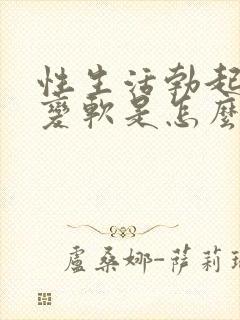 性生活勃起
變軟是怎麼
盧桑娜-薩莉瑞